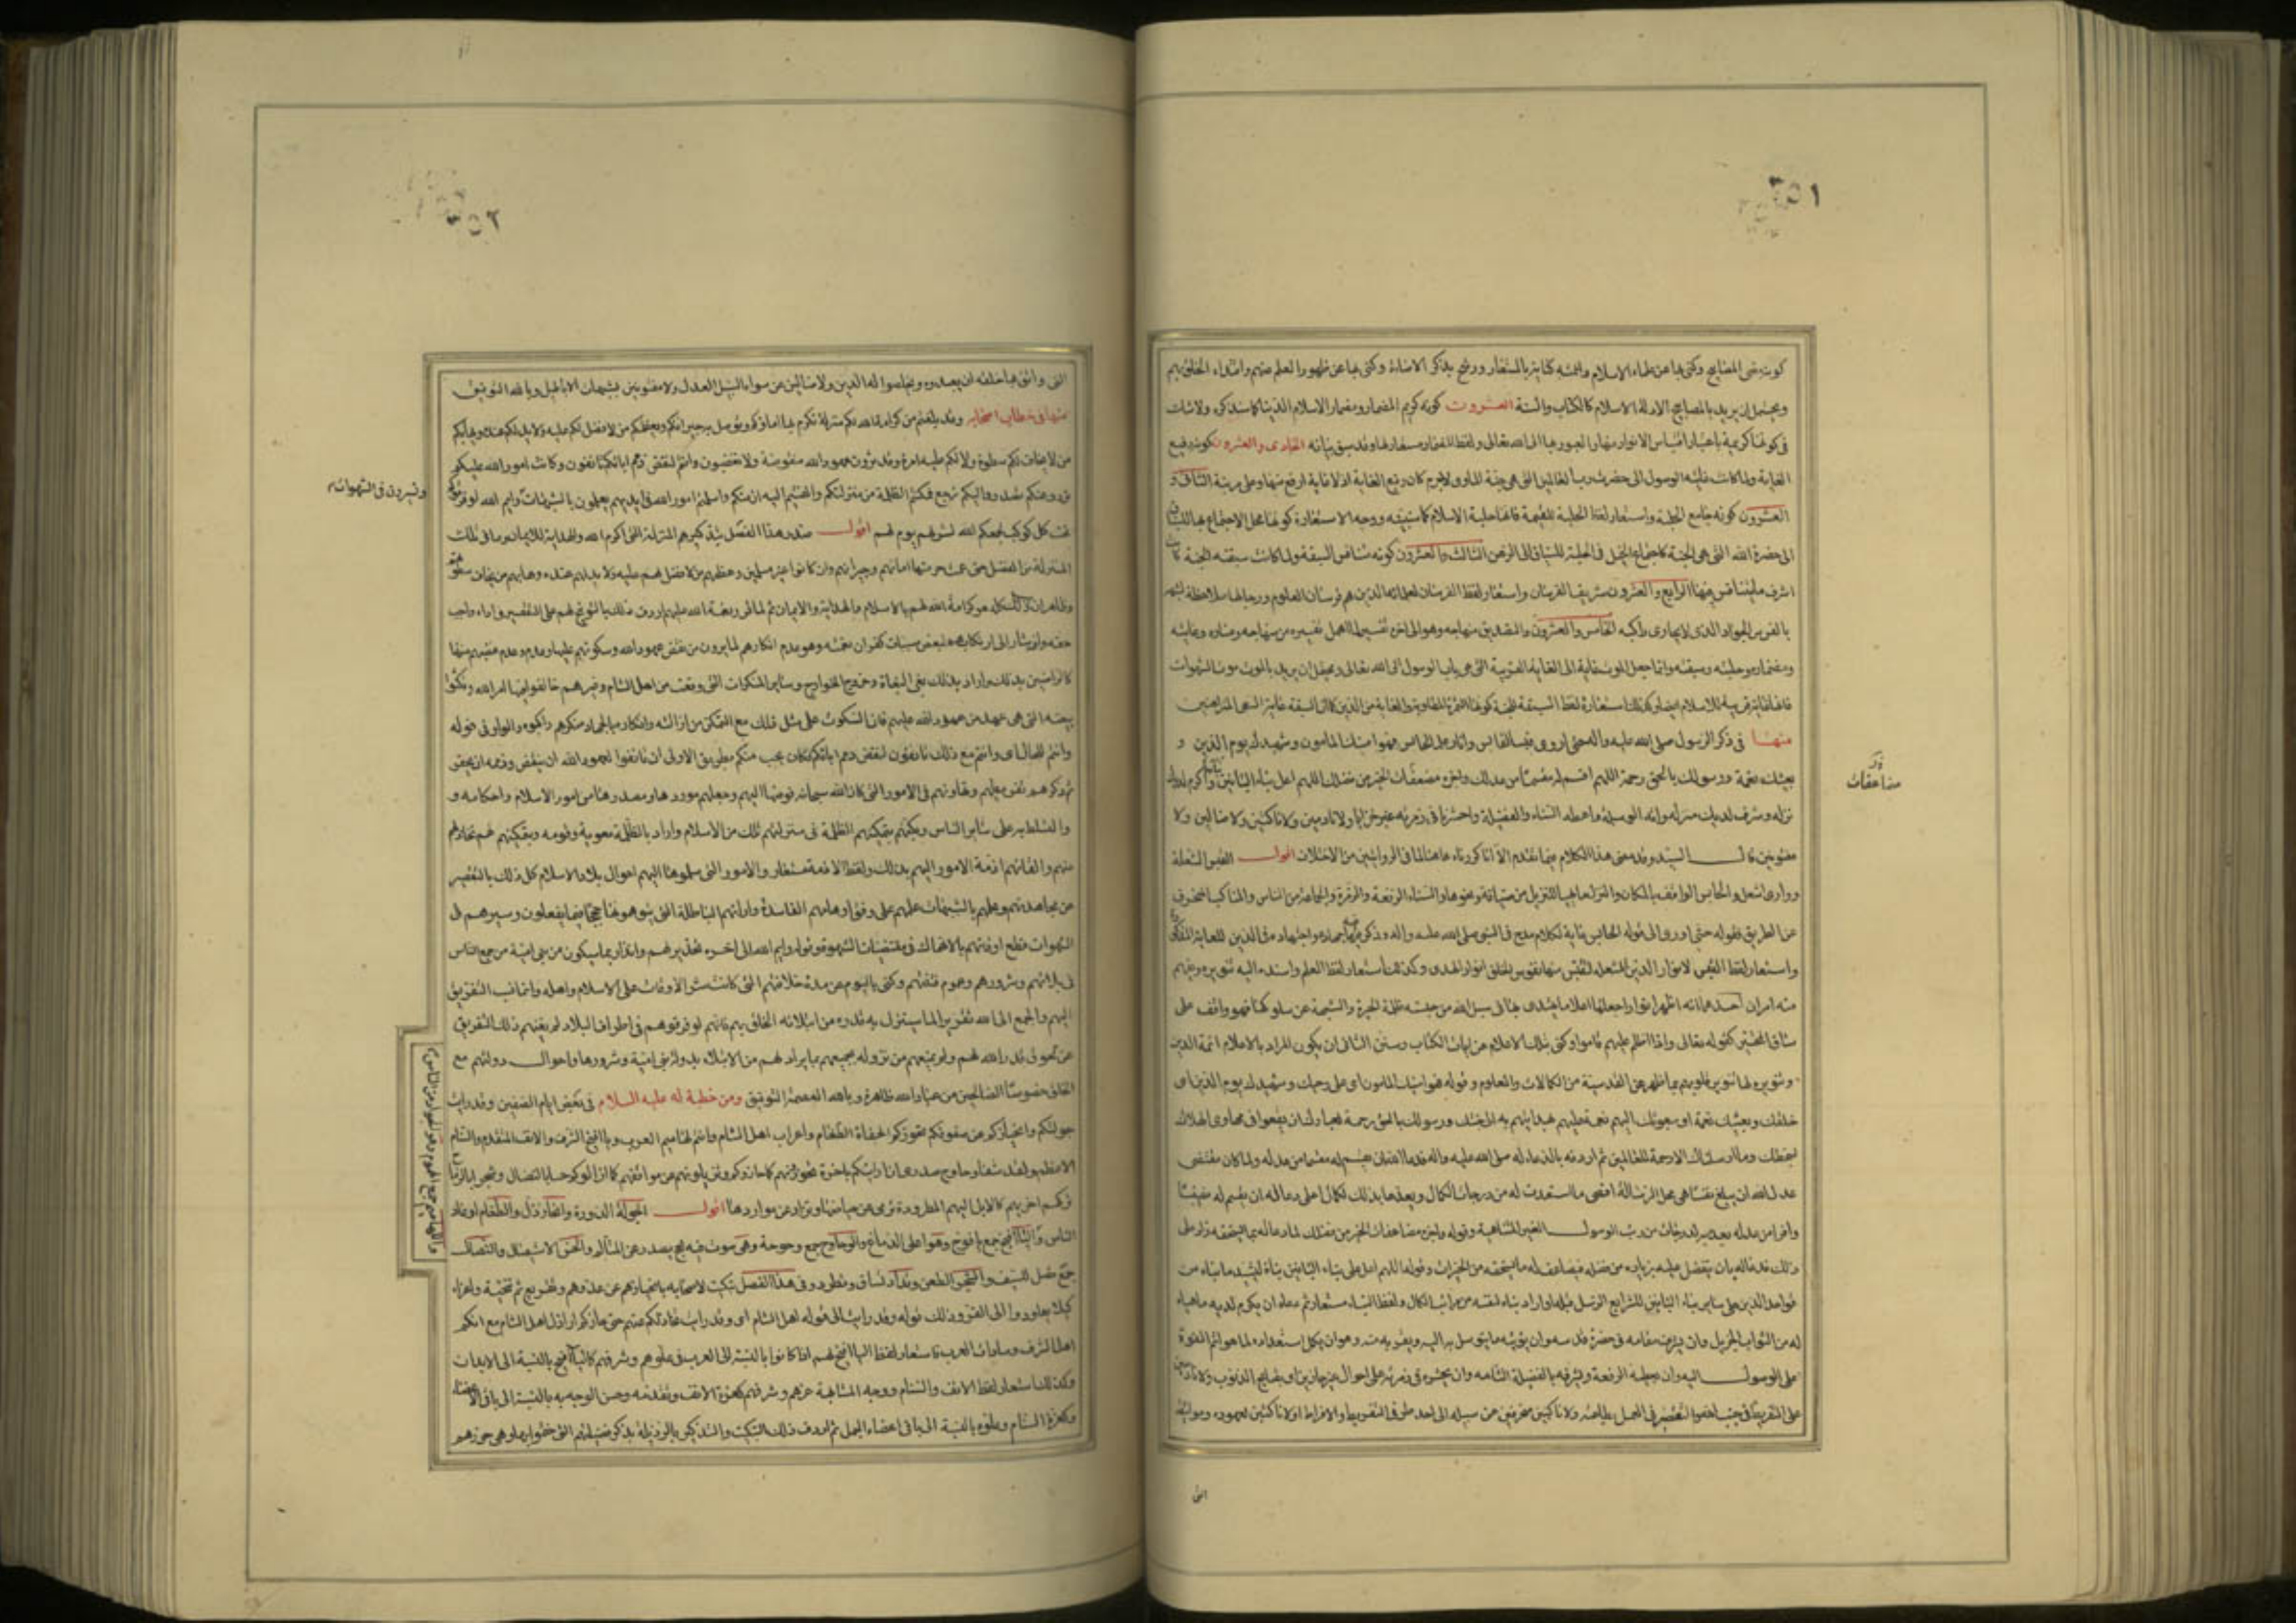 كونه مضئ المصابيح وكنى بها عن علماء الاسلام وائمته كناية بالمستعار ورشح بذكر الاضاءة وكنى بها عن ظهور العلم منهم واقتداء الخلق بهم
ويحتمل ان يريد بالمصابيح الادلة الاسلام كالكتاب والسنة العشرون كونه كريم المضمار ومضمار الاسلام الدنيا كما سنذكره ولا شك
فى كونها كريمة باعتبار اقتباس الانوار منها والعبور بها الى الله تعالى ولفظ المضمار مستعار لها وقد سبق بيانه الحادى والعشرون كونه رفيع
الغاية ولما كانت غايته الوصول الى حضرت رب العالمين التى هى جنة الماوى لاجرم كان رفيع الغاية اذ لا غاية ارفع منها وعلى مرتبة الثانى و
العشرون كونه جامع الحلبة واستعار لفظ الحلبة للقيمة فانها حلبة الاسلام كما سنبينه ووجه الاستعارة كونها محل الاجتماع بها للسباق
الى حضرة الله التى هى الجنة كاجتماع الخيل فى الحلبة للسباق الى الرهن الثالث والعشرون كونه متنافس السبقة ولما كانت سبقته الجنة كانت
اشرف ما يتنافس فيها الرابع والعشرون شريف الفرسان واستعار لفظ الفرسان لعلمائه الذين هم فرسان العلوم ورجالها ملاحظة لشبههم
بالفرس الجواد الذى لا يجارى راكبه الخامس والعشرون والتصديق منهاجه وهو الى اخره تفسير لما اهمل تفسيره من منهاجه ومناره وغايته
ومضماره وحلبته وسبقته وانما جعل الموت غاية الى الغاية القريبة التى هى باب الوصول الى الله تعالى ويحتمل ان يريد بالموت موت الشهوات
فانها غاية قريبة للاسلام ايضا وكذلك استعارة لفظ السبقة للجنة كونها الثمرة المطلوبة والغاية من الدين كما ان السبقة غاية السعى المتراهنين
منها فى ذكر الرسول صلى الله عليه واله حتى اورى قبسا لقابس وانار علما لحابس فهو امينك المامون وشهيدك يوم الدين و
بعيثك نعمة ورسولك بالحق رحمة اللهم اقسم له مقسما من عدلك واجزه مضعفات الخير من فضلك اللهم اعل بناء البانين بنائه واكرم لديك
نزله وشرف لديك منزله واته الوسيلة واعطه السناء والفضيلة واحشرنا فى زمرته غير خزايا ولا نادمين ولا ناكبين ولا ضالين ولا
مفتونين قال السيد وقد مضى هذا الكلام فيما تقدم الا انا كررناه هاهنا لما فى الروايتين من الاختلاف اقول القبس الشعلة
وورى اشعل والحابس الواقف بالمكان والنزل ما يهيأ للنزيل من ضيافة ونحوها والسناء الرفعة والزمرة والجماعة من الناس والناكب المنحرف
عن الطريق فقوله حتى اورى الى قوله لحابس غاية لكلام مدح فى النبى صلى الله عليه واله وذكر فيه جهاده واجتهاده فى الدين للغاية المذكورة
واستعار لفظ القبس لانوار الدين المشتعلة لتقتبس منها نفوس الخلق انوار الهدى وكذلك استعار لفظ العلم واسند اليه تنويره ويفهم
منه امران احدهما انه اظهر انوارا جعلها اعلاما يهتدى بها فى سبيل الله من حبسته ظلمة الحيرة والشبهة عن سلوكها فهو واقف على
ساق التحير كقوله تعالى واذا اظلم عليهم قاموا وكنى بتلك الاعلام عن ايات الكتاب وسنن الثانى ان يكون المراد بالاعلام ائمة الدين
وتنويره لها تنوير قلوبهم بما ظهر عن القدسية من الكمالات والعلوم وقوله فهو امينك المامون اى على وحيك وشهيدك يوم الدين اى
خلقك وبعيثك نعمة اى مبعوثك اليهم نعمة عليهم بهدايتهم به الى جنتك ورسولك بالحق رحمة لعبادك ان يقعوا فى مهاوى الهلاك
بسخطك وما ارسلناك الا رحمة للعالمين ثم اردفه بالدعاء له صلى الله عليه واله فدعا الله ان يقسم له مقسما من عدله ولما كان مقتضى
عدل الله ان يبلغ نفسا هى محل الرسالة اقصى ما استعدت له من درجات الكمال ويعدها بذلك لكمال اعلى دعا له ان يقسم له نصيبا
وافرا من عدله يعده به لدرجات من رتب الوصول الغير المتناهية وقوله واجزه مضاعفات الخير من فضلك لما دعا له بما استحقه زاد على
ذلك فدعا له بان يتفضل عليه بزيادة من فضله فيضاعف له ما يستحقه من الخيرات وقوله اللهم اعل على بناء البانين بناه ليشيد ما بناه من
قواعد الدين على ساير بناء البانين للشرايع الرسل قبله او اراد بناء لنفسه من مراتب الكمال ولفظ البناء مستعار ثم دعاه ان يكرم لديه ما هياه
له من الثواب الجزيل وان يشرف مقامه فى حضرة قدسه وان يؤتيه ما يتوسل به اليه ويقربه منه وهو ان يكمل استعداده لما هو اتم القوة
على الوصول اليه وان يعطيه الرفعة ويشرفه بالفضيلة التامة وان يحشره فى زمرته على احوال غير خازين اى بقبايح الذنوب ولا نادمين
على التفريط فى جنب الله والتقصير فى العمل بطاعته ولا ناكبين منحرفين عن سبيله الى احد طرفى التفريط والافراط او لا ناكثين لعهوده ومواثيقه
التى
مضاعفات
التى واثق بها خلقه ان يعبدوه ويخلصوا له الدين ولا ضالين عن سواء السبيل العدل ولا مفتونين بشبهات الاباطيل وبالله التوفيق
منها فى خطاب اصحابه وقد بلغتم من كرامة الله لكم منزلة تكرم بها اماؤكم ويوصل بها جيرانكم ويعظمكم من لا فضل لكم عليه ولا يد لكم عنده ويهابكم
من لا يخاف لكم سطوة ولا لكم عليه امرة وقد ترون عهود الله منقوضة ولا تغضبون وانتم لنقض ذمم ابائكم تانفون وكانت امور الله عليكم
ترد وعنكم تصدر واليكم ترجع فمكنتم الظلمة من منزلتكم والقيتم اليه ازمتكم واسلمتم امور الله فى ايديهم يعملون بالشبهات وايم الله لو فرقوكم
تحت كل كوكب لجمعكم الله لشر يوم لهم اقول صدر هذا الفصل بتذكيرهم المنزلة التى اكرم الله والهداية للايمان
وتسيرون فى الشهوات
المنزلة من الفضل حتى عمت حرمتها اماءهم وجيرانهم وان كانوا غير مسلمين وعظمهم من لا فضل لهم عليه ولا يد لهم عنده وهابهم من يخاف سطوتهم
وظاهر ان ذلك كله هو كرامة الله لهم بالاسلام والهداية والايمان
حقه ولم يشار الى ارتكابهم لبعض مسببات كفران نعمته وهو عدم انكارهم لما يرون من نقض عهود الله وسكوتهم عليها وعدم غضبهم منها
كالراضين بذلك واراد بذلك بغى البغاة وخروج الخوارج وساير المنكرات التى وقعت من اهل الشام وغيرهم خالفوا فيها امر الله ونكثوا
بيعته التى هى عهد من عهود الله عليهم فان السكوت على مثل ذلك مع التمكن من ازالته وانكاره بالجهاد منكر هم راكبوه والواو فى قوله
وانتم للحال اى وانتم مع ذلك تانفون لنقض ذمم ابائكم فكان يجب منكم بطريق الاولى ان تانفوا لعهود الله ان ينقض وذممه ان يخفر
ثم ذكرهم تفريطهم وتهاونهم فى الامور التى كان الله سبحانه فوضها اليهم وجعلهم موردها ومصدرها من امور الاسلام واحكامه و
والتسلط به على ساير الناس وبكتهم بتمكينهم الظلمة فى منزلتهم تلك من الاسلام واراد بالظلمة معوية وقومه وبتمكينهم لهم تخاذلهم
عنهم والقائهم ازمة الامور اليهم بذلك ولفظ الازمة مستعار والامور التى سلموها اليهم احوال بلاد الاسلام كل ذلك بالتقصير
عن مجاهدتهم وعملهم بالشبهات عملهم على وفق اوهامهم الفاسدة وارائهم الباطلة التى يتوهمونها حججا فيما يفعلون وسيرهم فى
الشهوات قطع اوقاتهم بالانهماك فى مقتضيات الشهوة وقوله وايم الله الى اخره تحذير لهم وانذار بما سيكون من بنى امية من جمع الناس
فى بلائهم وشرورهم وعموم فتنتهم وكنى باليوم عن مدة خلافتهم التى كانت شر الاوقات على الاسلام واهله وانما نسب التفريق
اليهم والجمع الى الله تقريرا لما سينزل به قدره من ابتلائه الخلق بهم فانهم لو فرقوهم فى اطراف البلاد لم يغنهم ذلك التفريق
عن لحوق قدر الله لهم ولم يمنعهم من نزوله بجميعهم بما يراد لهم من الابتلاء بدولة بنى امية وشرورها واحوال دولتهم مع
الخلق خصوصا الصالحين من عباد الله ظاهرة وبالله العصمة والتوفيق ومن خطبة له عليه السلام فى بعض ايام الصفين وقد رايت
جولتكم وانحيازكم عن صفوفكم تحوزكم الجفاة الطغام واعراب اهل الشام وانتم لهاميم العرب ويافيخ الشرف والانف المتقدم والسنام
الاعظم ولقد شفا وحاوح صدرى ان رايتكم باخرة تحوزونهم كما حازوكم وتزيلونهم عن مواقفهم كما ازالوكم حسا بالنضال وشجرا بالرماح
تركب اخريهم كالابل الهيم المطرودة ترمى عن حياضها وتذاد عن مواردها اقول الجولة الدورة وانحاز زال والطغام اوغاد
الناس واليافيخ جمع يافوخ وهو اعلى الدماغ والوحاوح جمع وحوحة وهى صوت فيه بح يصدر عن المتالم والحس الاستيصال والنضال
جمع نصل للسيف والشجر الطعن وتذاد تساق وتطرد وفى هذا الفصل تبكيت لاصحابه بانحيازهم عن عدوهم وتقريع
كيلا يعاودوا الى الفرار وذلك قوله وقد رايت الى قوله اهل الشام اى وقد رايت تخاذلكم عنهم حتى حازكم اراذل اهل الشام مع انكم
اهل الشرف وسادات العرب واستعار لفظ اليافيخ لهم اذا كانوا بالنسبة الى العرب فى علوهم وشرفهم كاليافيخ بالنسبة الى الابدان
وكذلك استعار لفظ الانف والسنام ووجه المشابهة عزهم وشرفهم كعزة الانف وتقدمه وحسن الوجه به بالنسبة الى باقى الاعضاء
وكعزة السنام وعلوه بالنسبة الى باقى اعضاء الجمل ثم اردف ذلك التبكيت والتذكير بالرذيلة بذكر فضيلتهم التى ختموا بها وهى حوزهم